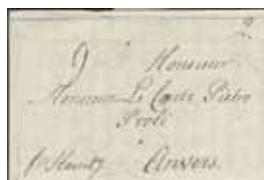 2.
9 Monsieur
Monsieur Le Comte Pietro
Proli
Anvers.